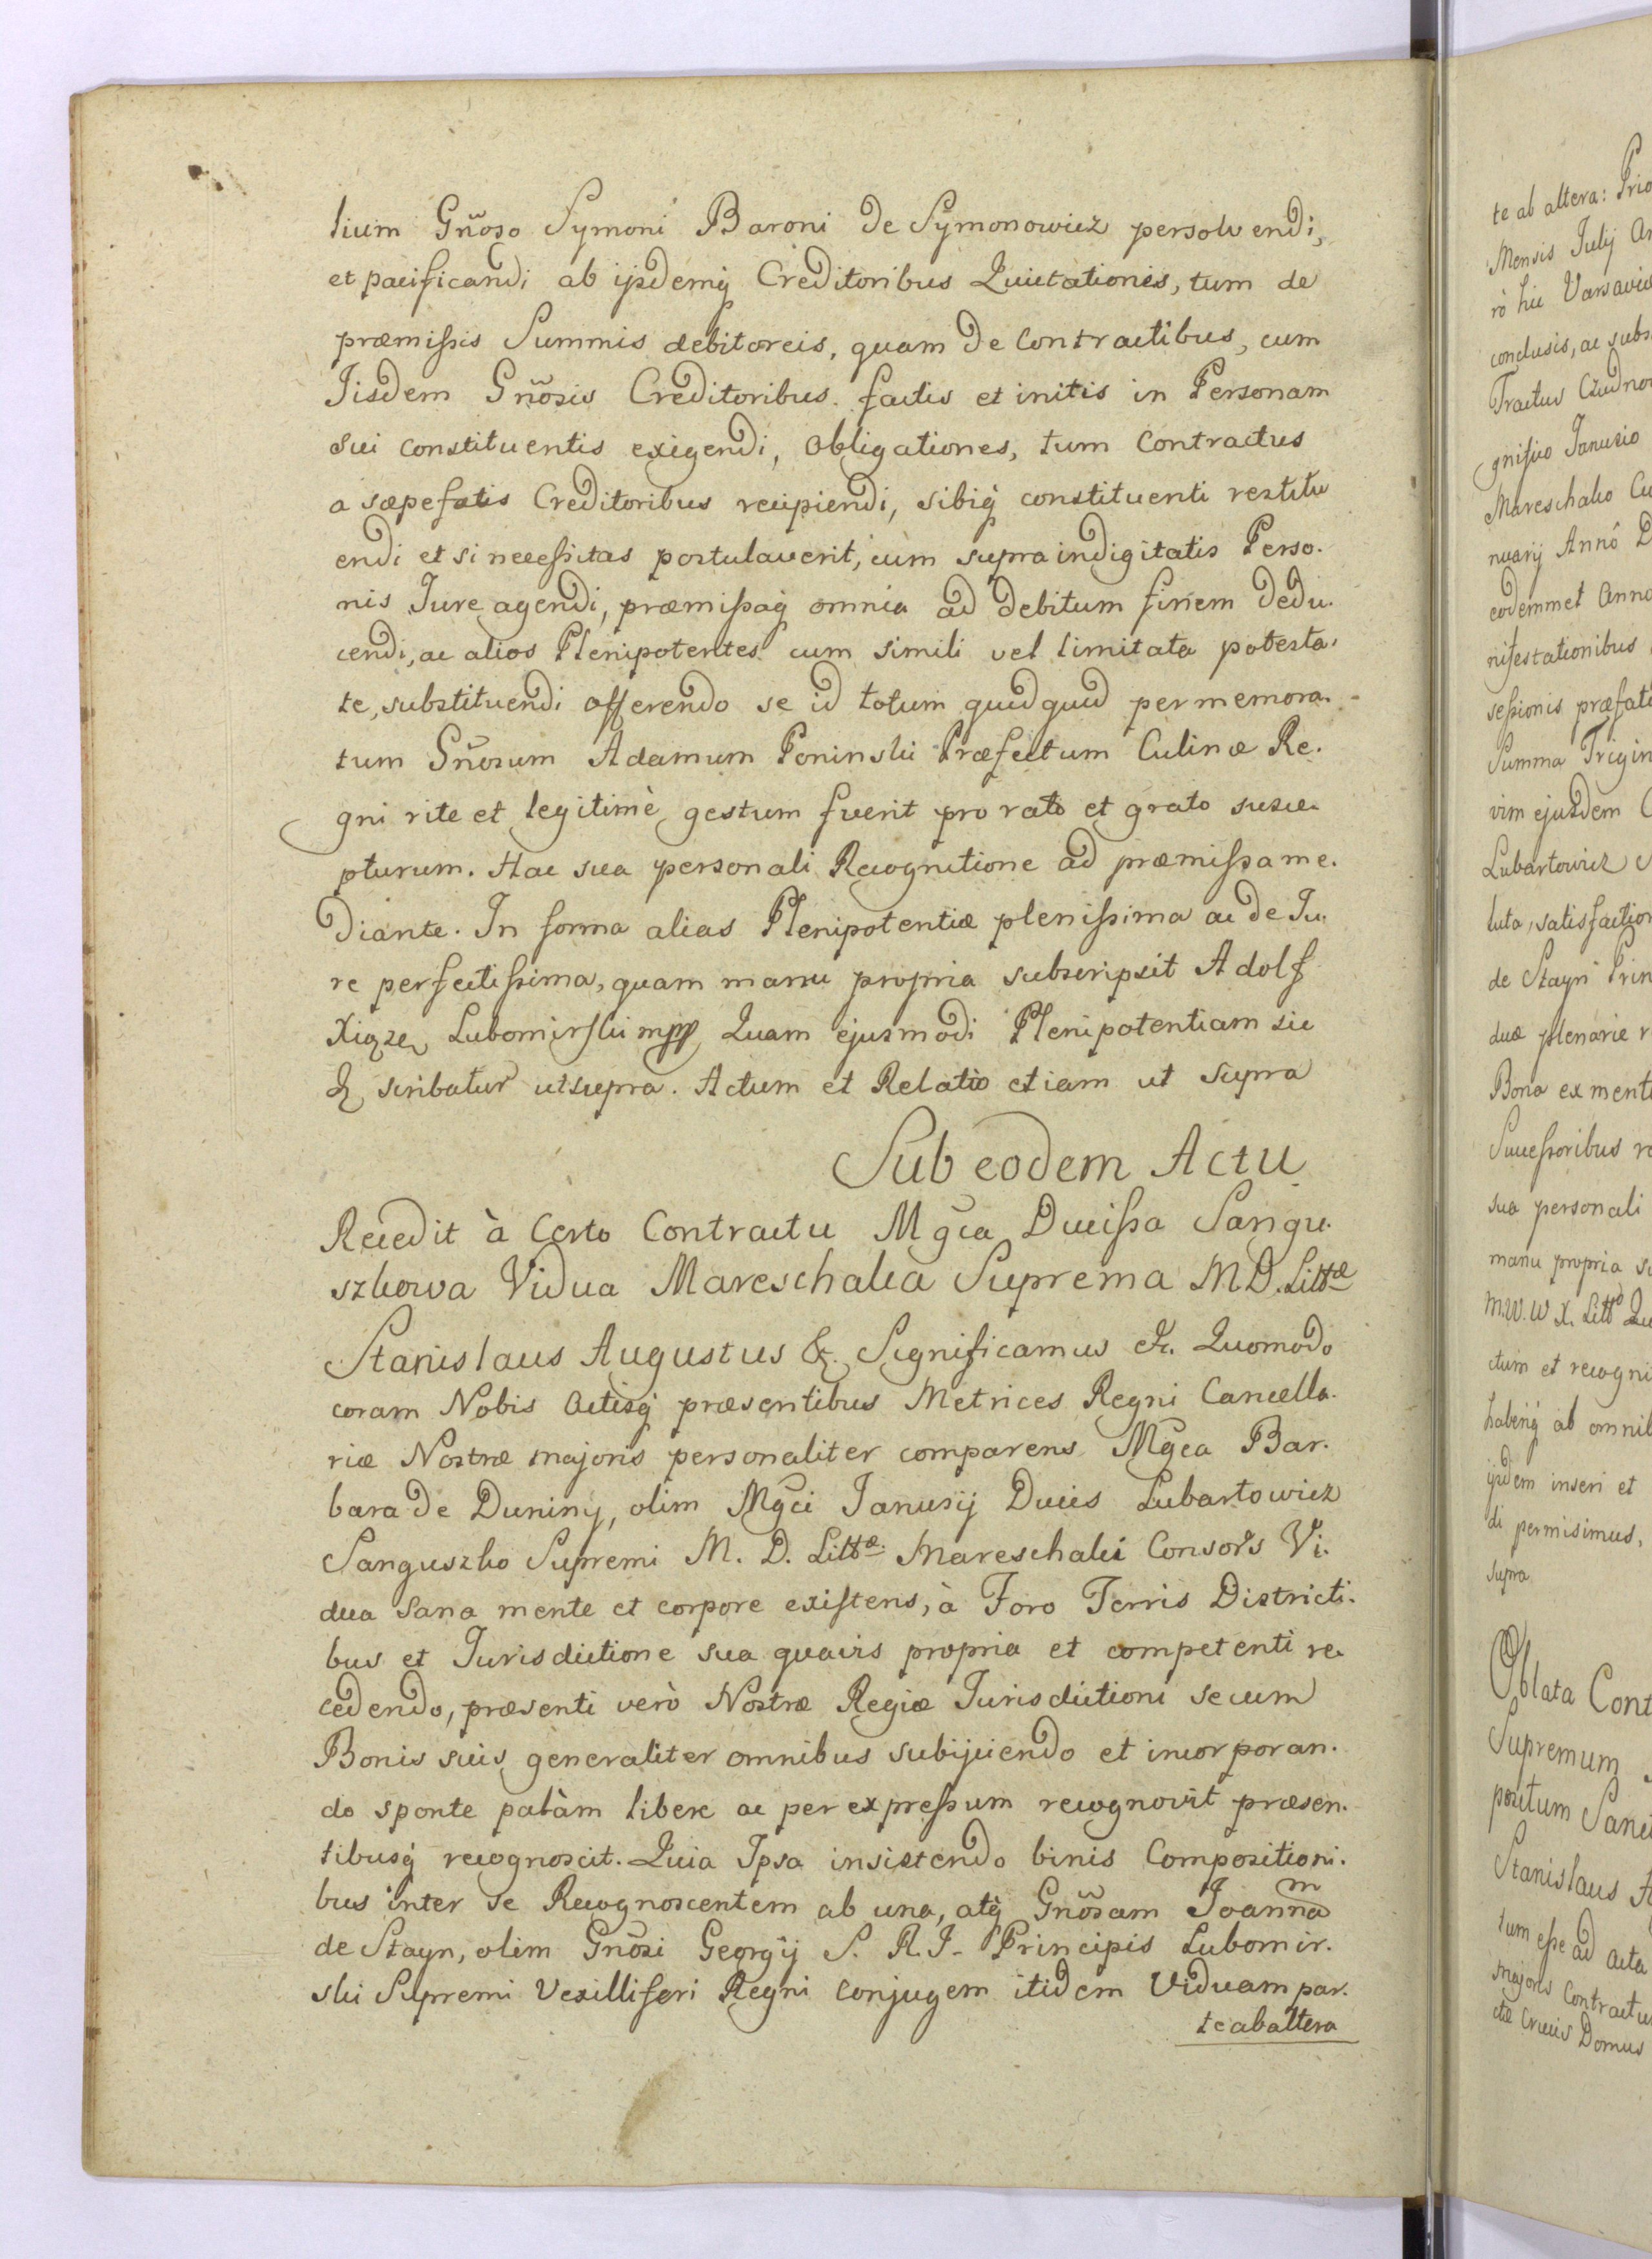 lium Gñoso Symoni Baroni de Symonowicz persolvendi,
et pacificandi ab ijsdemq̃ Creditoribus Quietationes, tum de
præmissis Summis debitoreis, quam de Contractibus, cum
Iisdem Gñosis Creditoribus factis et initis in Personam
sui constituentis exigendi, Obligationes, tum Contractus
a sæpefatis Creditoribus recipiendi, sibiq̃ constituenti restitu
endi et si necessitas postulaverit, cum supra indigitatis Perso.
nis Jure agendi, præmissaq̃ omnia ad debitum finem dedu.
cendi, ac alios Plenipotentes cum simili vel limitata potesta.
te, substituendi offerendo se id totum quidquid per memora.
tum Gñosum Adamum Poninski Præfectum Culinæ Re.
gni rite et legitimè gestum fuerit pro rato et grato susce.
pturum. Hac sua personali Recognitione ad præmissa me.
diante. In forma alias Plenipotentiæ plenissima ac de Ju.
re perfectissima, quam manu propria subscripsit Adolf
Xiąże Lubomirski mpp Quam ejusmodi Plenipotentiam sic
& scribatur ut supra. Actum et Relatio etiam ut supra
Sub eodem Actu
Recedit à Certo Contractu Mg̃ca Ducissa Sangu.
szkowa Vidua Mareschalca Suprema M D. Littæ
Stanislaus Augustus &. Significamus &. Quomodo
coram Nobis Actisq̃ præsentibus Metrices Regni Cancella.
riæ Nostræ majoris personaliter comparens Mg̃ca Bar.
bara de Duniny, olim Mg̃ci Janusij Ducis Lubartowicz
Sanguszko Supremi M. D. Littæ. Mareschalci Consors Vi.
dua sana mente et corpore existens, à Foro Terris Districti.
bus et Jurisdictione sua quavis propria et competenti re
cedendo, præsenti verò Nostræ Regiæ Jurisdictioni se cum
Bonis suis generaliter omnibus subijciendo et incorporan.
do sponte palàm libere ac per expressum recognovit præsen.
tibusq̃ recognoscit. Quia Ipsa insistendo binis Compositioni.
bus inter se Recognoscentem ab una, atq̃ Gñosam Joannam
de Stayn, olim Gñosi Georgij S. R. I. Principis Lubomir.
ski Supremi Vexilliferi Regni Conjugem itidem Viduam par.
te ab altera
te ab altera: Prio
Mensis Julij An
rò hic Varsavia
conclusis, ac subs
Tractus Czudno
gnifico Janusio
Mareschalco Cu
nuarij Annô D
eodemmet Anno
nifestationibus
sessionis præfat
Summa Trigin
vim ejusdem C
Lubartowicz
luta, satisfaction
de Stayn Prin
duæ plenarie r
Bona ex menti
Successoribus re
sua personali
manu propria su
M.W.W X. Litto Qu
ctum et recogni
habenq̃ ab omnib
ijsdem inseri et
di permisimus,
supra
Oblata Cont
Supremum
positum Sanc
Stanislaus A
tum esse ad acta
majoris Contractu
ctæ Crucis Domus